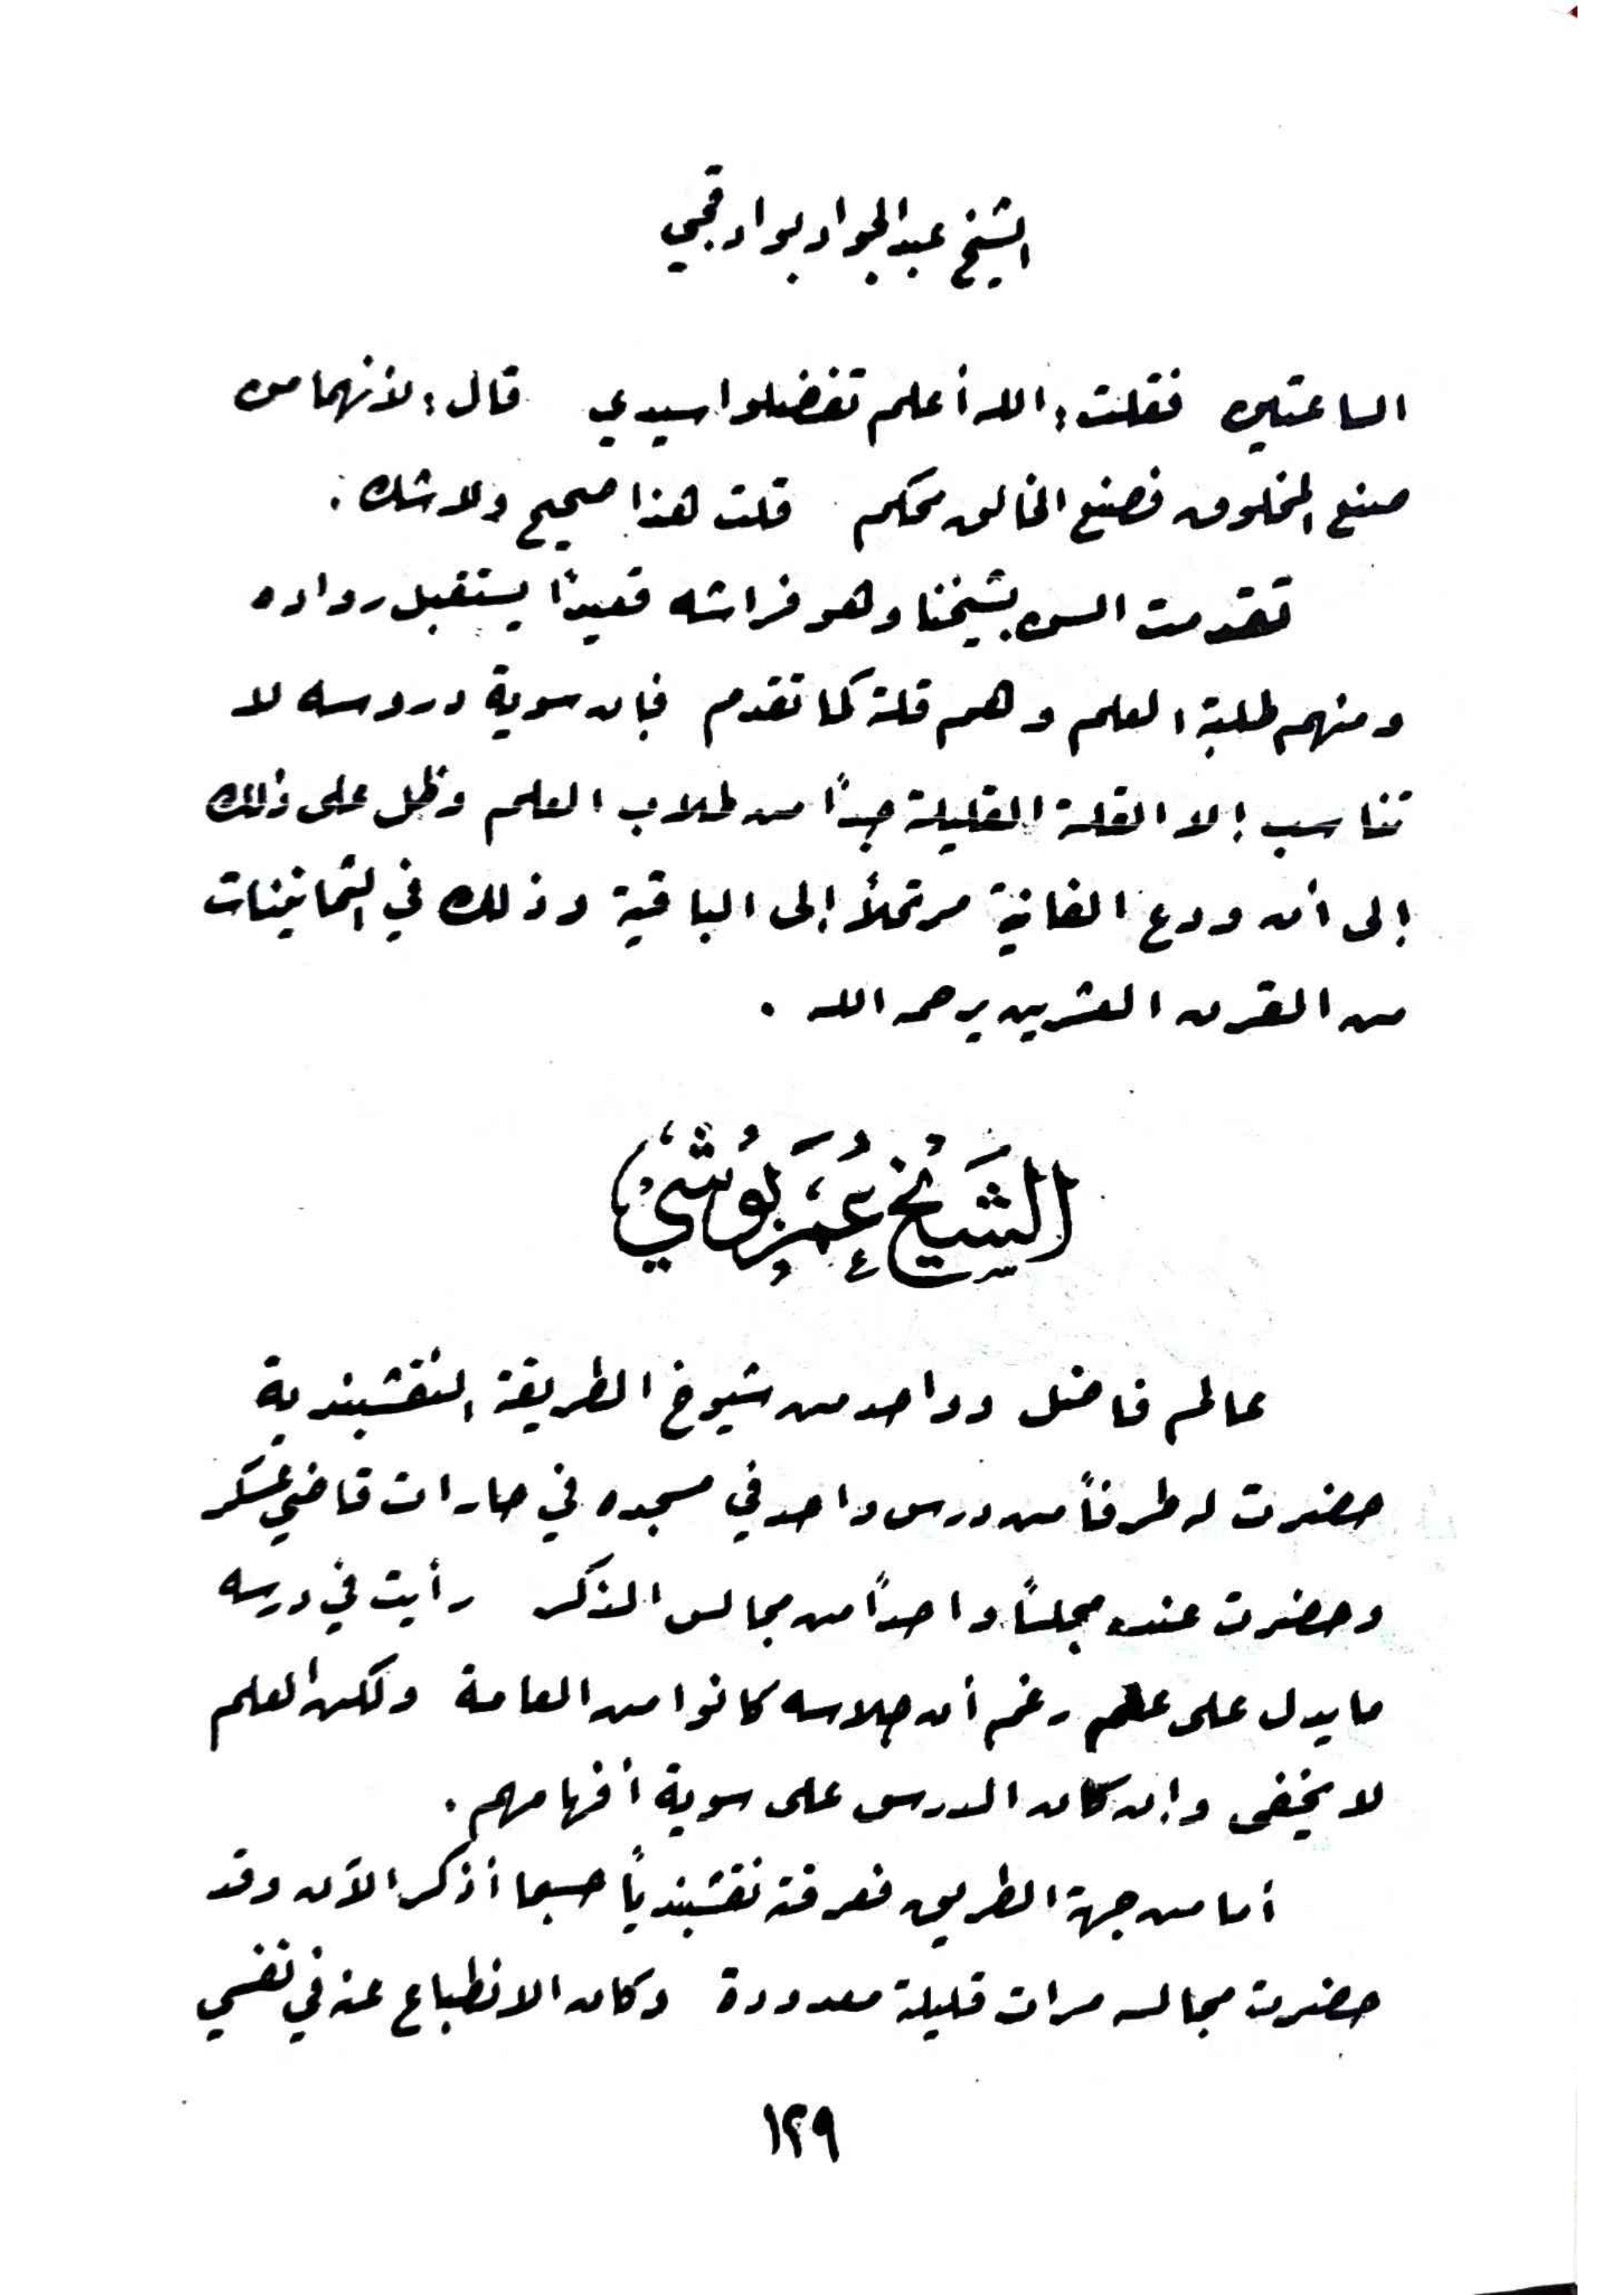 الشيخ عبدالجواد بوادقجي
الساعتين فقلت: الله أعلم تفضلوا سيدي قال: لأنهما من
صنع المخلوق فصنع الخالق محكم قلت هذا صحيح ولا شك.
تقدمت السن بشيخنا وهو فراشه قعيداً يستقبل رواده
ومنهم طلبة العلم وهم قلة كما تقدم فإن سوية دروسه لا
تناسب إلا القلة القليلة جداً من طلاب العلم وظل على ذلك
إلى أن ودع الفانية مرتحلاً إلى الباقية وذلك في الثمانينات
من القرن العشرين يرحمه الله .
الشَيْخ عُمَر بُوشي
عالم فاضل وواحد من شيوخ الطريقة النقشبندية
حضرت له طرفاً من درس واحد في مسجده في حارات قاضي عسكر
وحضرت عنده مجلساً واحداً من مجالس الذكر رأيت في درسه
ما يدل على علم رغم أن جلاسه كانوا من العامة ولكن العلم
لا يخفى وإن كان الدرس على سوية أفهامهم.
أما من جهة الطريق فعرفته نقشبندياً حسبما أذكر الآن وقد
حضرت مجالسه مرات قليلة معدودة وكان الانطباع عنه في نفسي
١٢٩